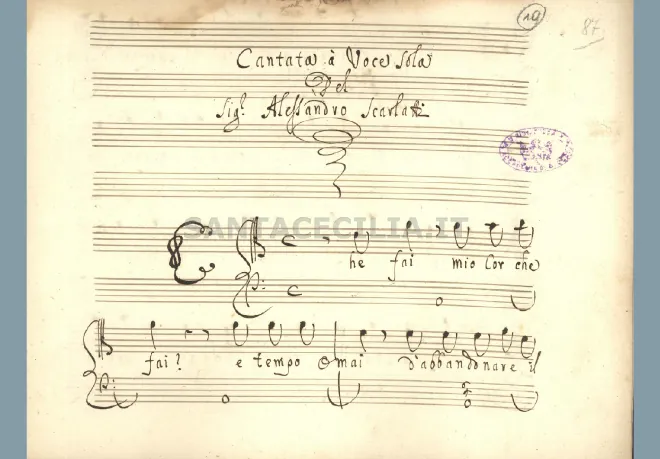 19
87
Cantata à Voce sola
Del
Sig.r Alessandro Scarlatti
SANTACECILIA.IT
C he fai mio Cor che
fai? e tempo Omai d'abbandonare il